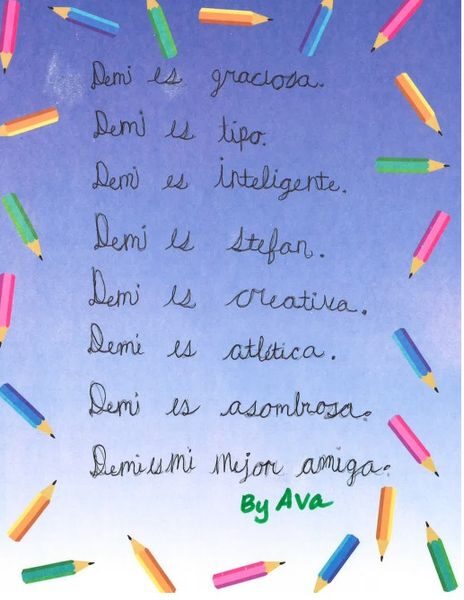 Demi es graciosa.
Demi es tipo.
Demi es inteligente.
Demi es stefan.
Demi es creativa.
Demi es atlética.
Demi es asombrosa.
Demi es mi mejor amiga.
By Ava